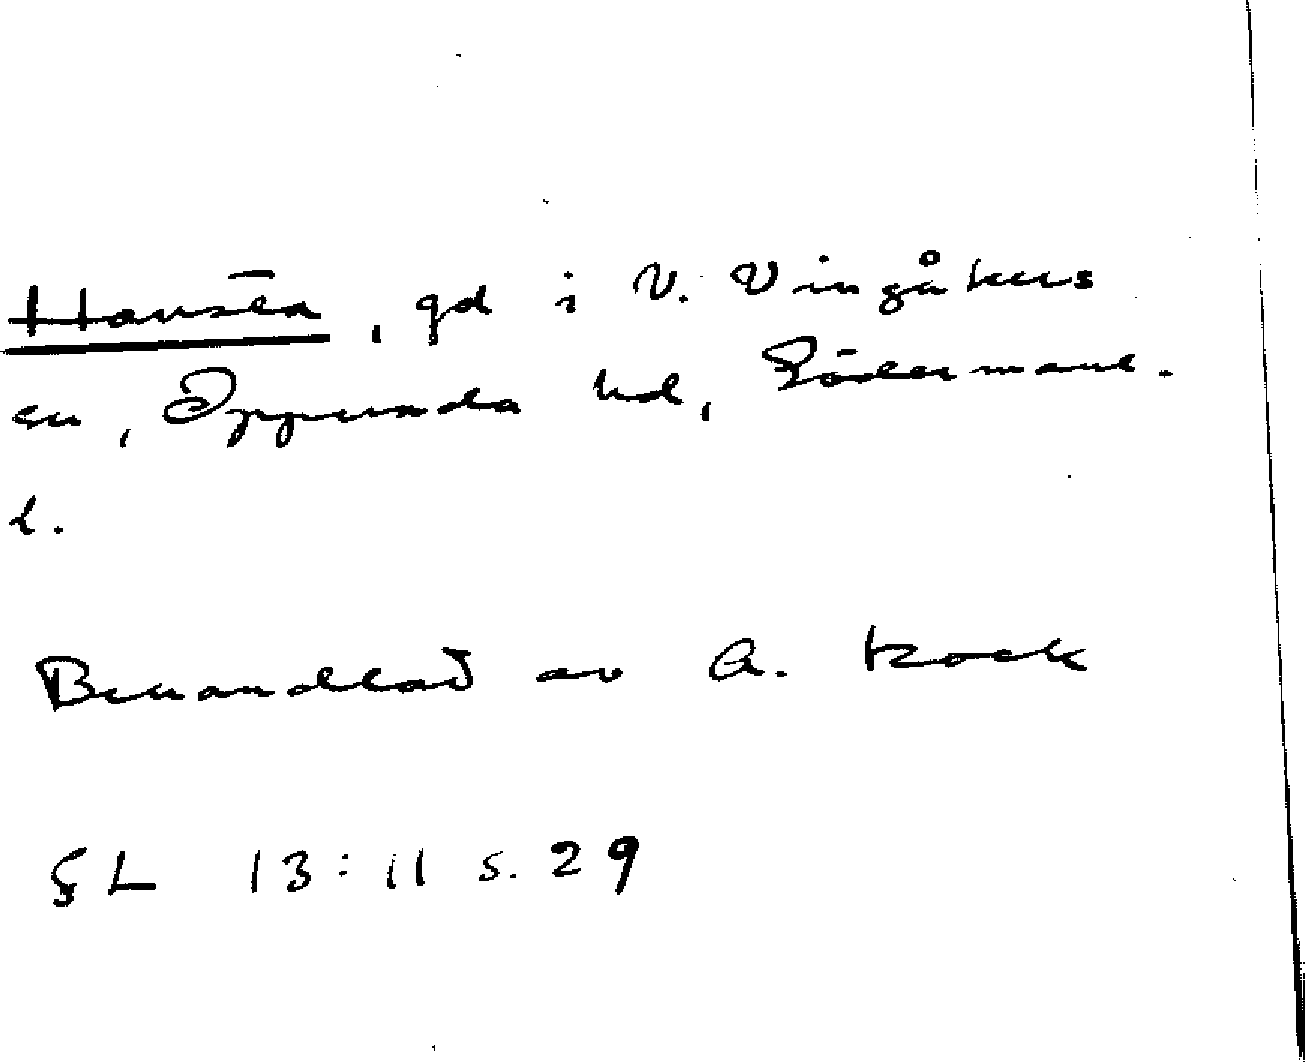 Hansta, gd i V. Vingåkers
sn, Oppunda hd, Södermanl.
l.
Behandlad av A. Kock
SL 13:11 s. 29